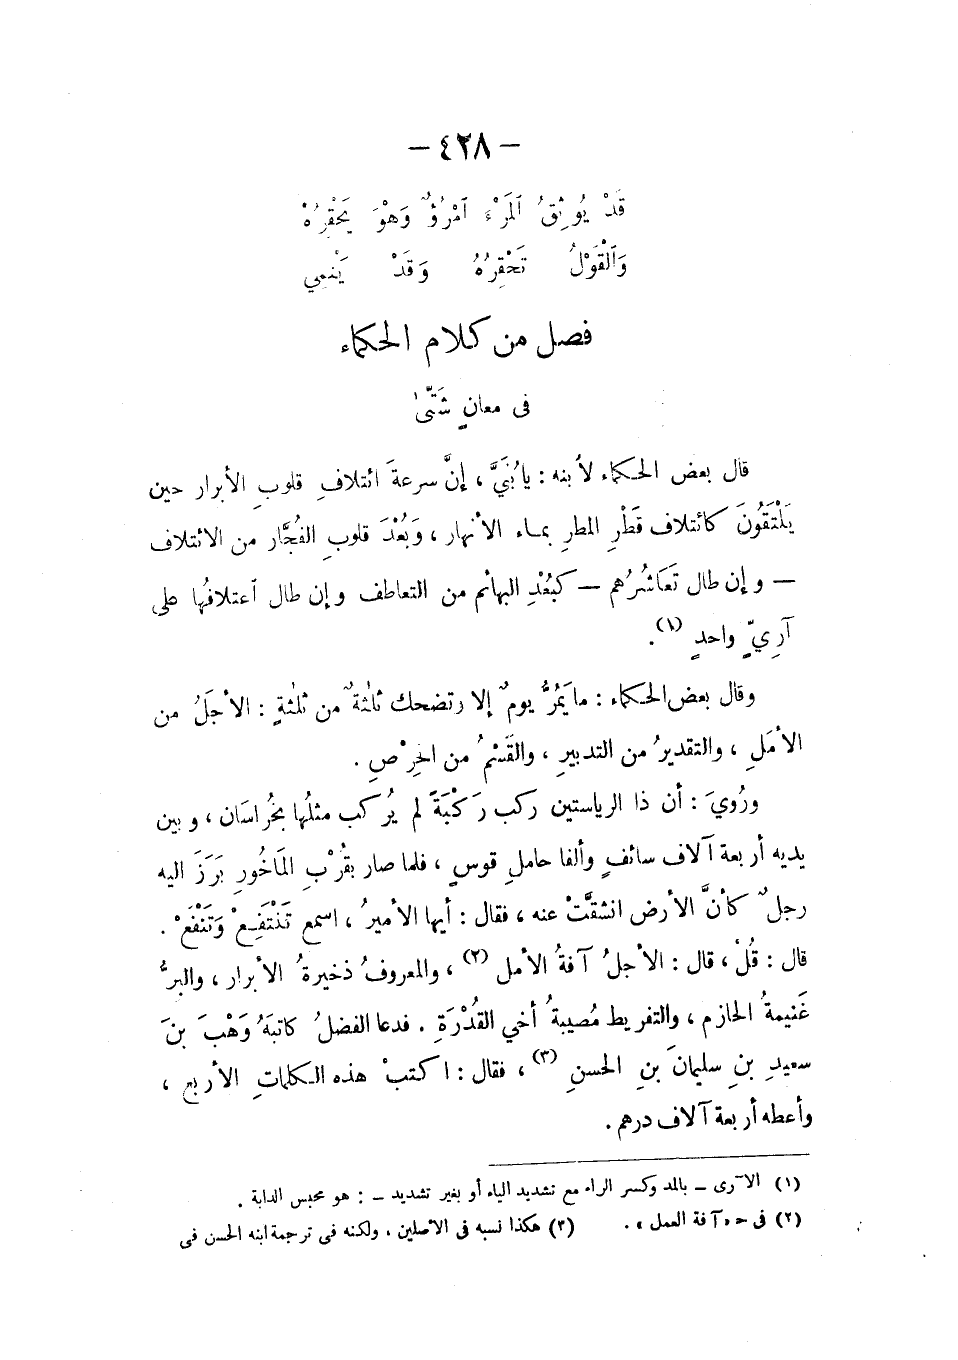 — ٤٢٨ —
قَدْ يُوبِقُ ٱلمَرْءَ ٱمْرُؤٌ وَهْوَ يَحْقِرُهْ
وَٱلْقَوْلُ تَحْقِرُهُ وَقَدْ يَنْمِي
فصل من كلام الحكماء
فى معانٍ شَتّىٰ
قال بعض الحكماء لأبنه : يا بُنَيَّ ، إنَّ سرعةَ ائتلافِ قلوبِ الأبرار حين
يَلْتَقُونَ كائتلاف قَطْرِ المطرِ بماء الأنهار ، وَبُعْدَ قلوبِ الفُجَّار من الائتلاف
— وإن طال تَعَاشُرُهم — كبُعْدِ البهائم من التعاطف وإن طال ٱعتلافُها على
آرِيٍّ واحدٍ (١) .
وقال بعض الحكماء : ما يَمُرُّ يومٌ إلا وتضحك ثلٰثةٌ من ثلٰثةٍ : الأجَلُ من
الأمَلِ ، والتقديرُ من التدبيرِ ، والقَسْمُ من الحِرْصِ .
ورُوِيَ : أن ذا الرياستين ركب رَكْبَةً لم يُركب مثلُها بخُراسَان ، وبين
يديه أربعة آلاف سائفٍ وألفا حاملِ قوسٍ ، فلما صار بقُرْبِ المَاخُورِ بَرَزَ اليه
رجلٌ كأنَّ الأرض انشقَّتْ عنه ، فقال : أيها الأميرُ ، اسمع تَنْتَفِعْ وَتَنْفَعْ .
قال : قُلْ ، قال : الأجلُ آفةُ الأمل (٢) ، والمعروفُ ذخيرةُ الأبرار ، والبرُّ
غَنيمةُ الحازم ، والتفريط مُصيبةُ أخي القُدْرَةِ . فدعا الفضلُ كاتبَهُ وَهْبَ بنَ
سعيدِ بنِ سليمانَ بنِ الحسنِ (٣) ، فقال : اكتبْ هذه الكلماتِ الأربع ،
وأعطه أربعة آلاف درهم .
(١) الآرى ــ بالمد وكسر الراء مع تشديد الياء أو بغير تشديد ــ : هو محبس الدابة .
(٢) فى حـ « آفة العمل » . (٣) هكذا نسبه فى الأصلين ، ولكنه فى ترجمة ابنه الحسن فى